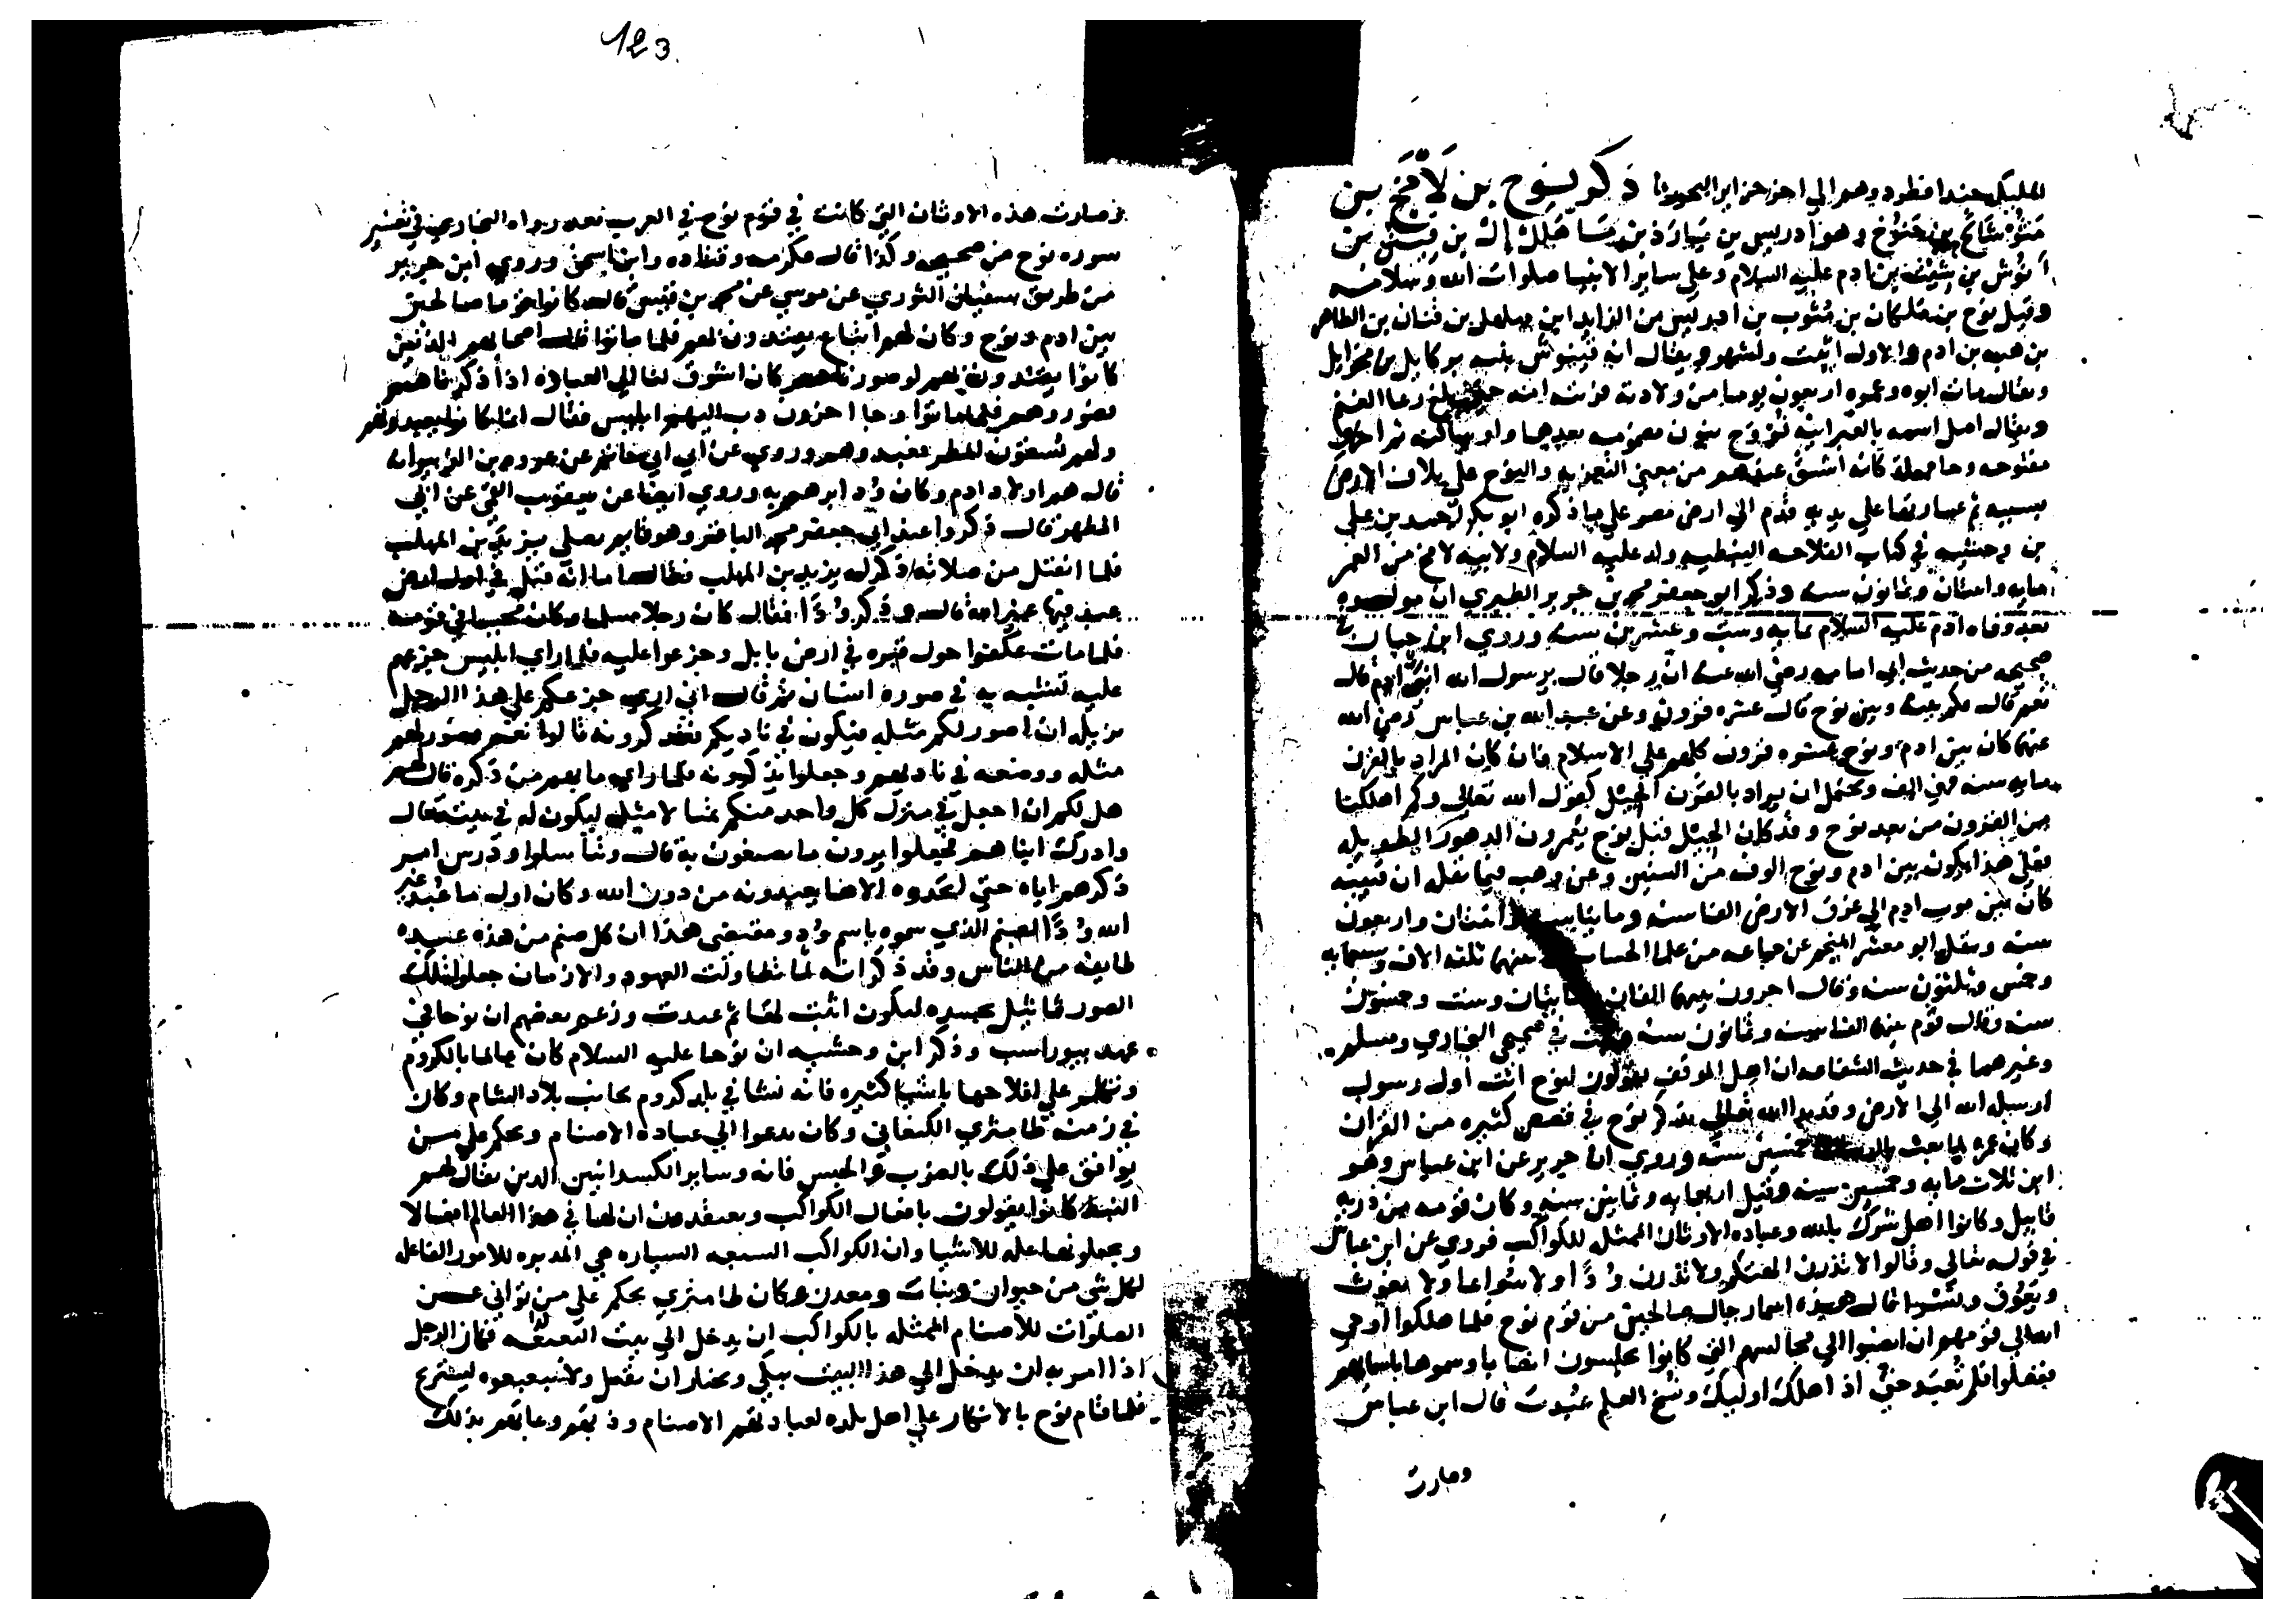 ذكر نوح بن لامخ بن
متوشالح بن خنوخ وهو ادريس بن يارد بن مهلال بن قينن بن
انوش بن شيث بن ادم عليه السلام وعلي ساير الانبيا صلوات الله وسلامه
بن هبه بن ادم والاول اثبت واشهر ويقال انه
ويقال مات ابوه وعمره اربعون يوما من ولادته
ويقال اصل اسمه بالعبرانيه
بسببه ثم قدم الي ارض مصر علي ما ذكره ابو بكر احمد بن علي
بن وحشيه في كتاب الفلاحه النبطيه ولد عليه السلام ولابيه لامخ من العمر
مايه واثنتان وثمانون سنه وذكر ابو جعفر محمد بن جرير الطبري ان مولده
بعد وفاه ادم عليه السلام مايه وست وعشرين سنه وروي ابن حبان في
صحيحه من حديث ابي امامه رضي الله عنه ان رجلا قال يرسول الله انبي ادم قال
نعم قال فكم بينه وبين نوح قال عشره قرون وعن عبد الله بن عباس رضي الله
عنهما كان بين ادم ونوح عشره قرون كلهم علي الاسلام فان كان المراد بالقرن
مايه سنه فهي الف ويحتمل ان يراد بالقرن الجيل كقول الله تعالي وكم اهلكنا
من القرون من بعد نوح وقد كان الجيل قبل نوح يعمرون الدهور الطويله
فعلي هذا يكون بين ادم ونوح الوف من السنين وعن وهب فيما نقله ابن قتيبه
كان بين موت ادم الي غرق الارض الفا سنه ومايتا واثنتان واربعون
سنه ونقل ابو معشر المنجم عن جماعه من علما الحساب بينهما ثلثه الاف وسبعمايه
وخمس وثلثون سنه وقال اخرون بينهما الفان ومايتان وست وخمسون
سنه وقال قوم بينهما الفا سنه وثمانون سنه في صحيحي البخاري ومسلم
وغيرهما في حديث الشفاعه ان اهل الموقف يقولون لنوح انت اول رسول
ارسله الله الي الارض وقد بدا الله تعالي بذكر نوح في قصص كثيره من القران
وكان عمره لما بعث خمسين سنه وروي ابن جرير عن ابن عباس وهو
ابن ثلاث مايه وخمسين سنه وقيل اربعمايه وثمانين سنه وكان قومه من ذريه
قابيل وكانوا اهل شرك بالله وعباده الاوثان الممثله للكواكب فروي عن ابن عباس
في قوله تعالي وقالوا لا تذرن الهتكم ولا تذرن ودا ولا سواعا ولا يغوث
ويعوق ونسرا قال هذه اسما رجال صالحين من قوم نوح فلما هلكوا اوحي
الي قومهم ان انصبوا الي مجالسهم التي كانوا يجلسون انصابا وسموها باسمايهم
ففعلوا فلم تعبد حتي اذا هلك اوليك ونسخ العلم عبدت قال ابن عباس
وصارت
123
وصارت هذه الاوثان التي كانت في قوم نوح في العرب بعد رواه البخاري في تفسير
سوره نوح من صحيحه وكذا قال عكرمه وقتاده وابن اسحق وروي ابن جرير
من طريق سفيان الثوري عن موسي عن محمد بن قيس قال كانوا قوما صالحين
بين ادم ونوح وكان لهم اتباع يقتدون بهم فلما ماتوا قال اصحابهم الذين
كانوا يقتدون بهم لو صورناهم كان اشوق لنا الي العباده اذا ذكرناهم
فصوروهم فلما ماتوا وجا اخرون دب اليهم ابليس فقال انما كانوا يعبدونهم
وبهم يسقون المطر فعبدوهم وروي عن ابن ابي حاتم عن عروه بن الزبير انه
قال هم اولاد ادم وكان ود ابرهم به وروي ايضا عن يعقوب القمي عن ابي
المطهر قال ذكروا عند ابي جعفر محمد الباقر وهو قايم يصلي يزيد بن المهلب
فلما انفتل من صلاته قال ذكرتم يزيد بن المهلب اما انه قتل في اول ارض
عبد فيها غير الله قال وذكر ودا فقال كان رجلا مسلما وكان محببا في قومه
فلما مات عكفوا حول قبره في ارض بابل وجزعوا عليه فلما راي ابليس جزعهم
عليه تشبه في صوره انسان ثم قال اني اري جزعكم علي هذا الرجل
فهل ان اصور لكم مثله فيكون في ناديكم فتذكرونه قالوا نعم فصور لهم
مثله ووضعه في ناديهم وجعلوا يذكرونه فلما راي ما بهم من ذكره قال لهم
هل لكم ان اجعل في منزل كل واحد منكم تمثالا مثله ليكون له في بيته فقال
وادرك ابناهم فجعلوا يرون ما يصنعون به قال وتناسلوا ودرس امر
ذكرهم اياه حتي اتخذوه الاها يعبدونه من دون الله وكان اول ما عبد غير
الله ودا الصنم الذي سموه باسم ود ومقتضي هذا ان كل صنم من هذه عبده
طايفه من الناس وقد ذكر انه لما تطاولت العهود والازمان جعلوا تلك
الصور تماثيل مجسده ليكون اثبت لها ثم عبدت وزعم بعضهم ان نوحا في
عهد بيوراسب وذكر ابن وحشيه ان نوحا عليه السلام كان عالما بالكروم
وتكلم علي افلاحها باشيا كثيره فانه نشا في بلد كروم بجانب بلاد الشام وكان
في زمنه طامثري الكنعاني وكان يدعوا الي عباده الاصنام ويحكم علي من
يوافق علي ذلك بالضرب والحبس فانه وساير الكسدانيين الذين يقال لهم
النبط كانوا يقولون بافعال الكواكب ويعتقدون ان لها في هذا العالم افعالا
ويجعلونها عله للاشيا وان الكواكب السبعه السياره هي المدبره للامور الفاعله
لكل شي من حيوان ونبات ومعدن وكان طامثري يحكم علي من تواني عن
الصلوات للاصنام الممثله بالكواكب ان يدخل الي بيت فكان الرجل
اذا امر به ان يدخل الي هذا البيت يبكي ويختار ان يقتل
فلما قام نوح بالانكار علي اهل بلده لعبادتهم الاصنام وذمهم وعابهم بذلك